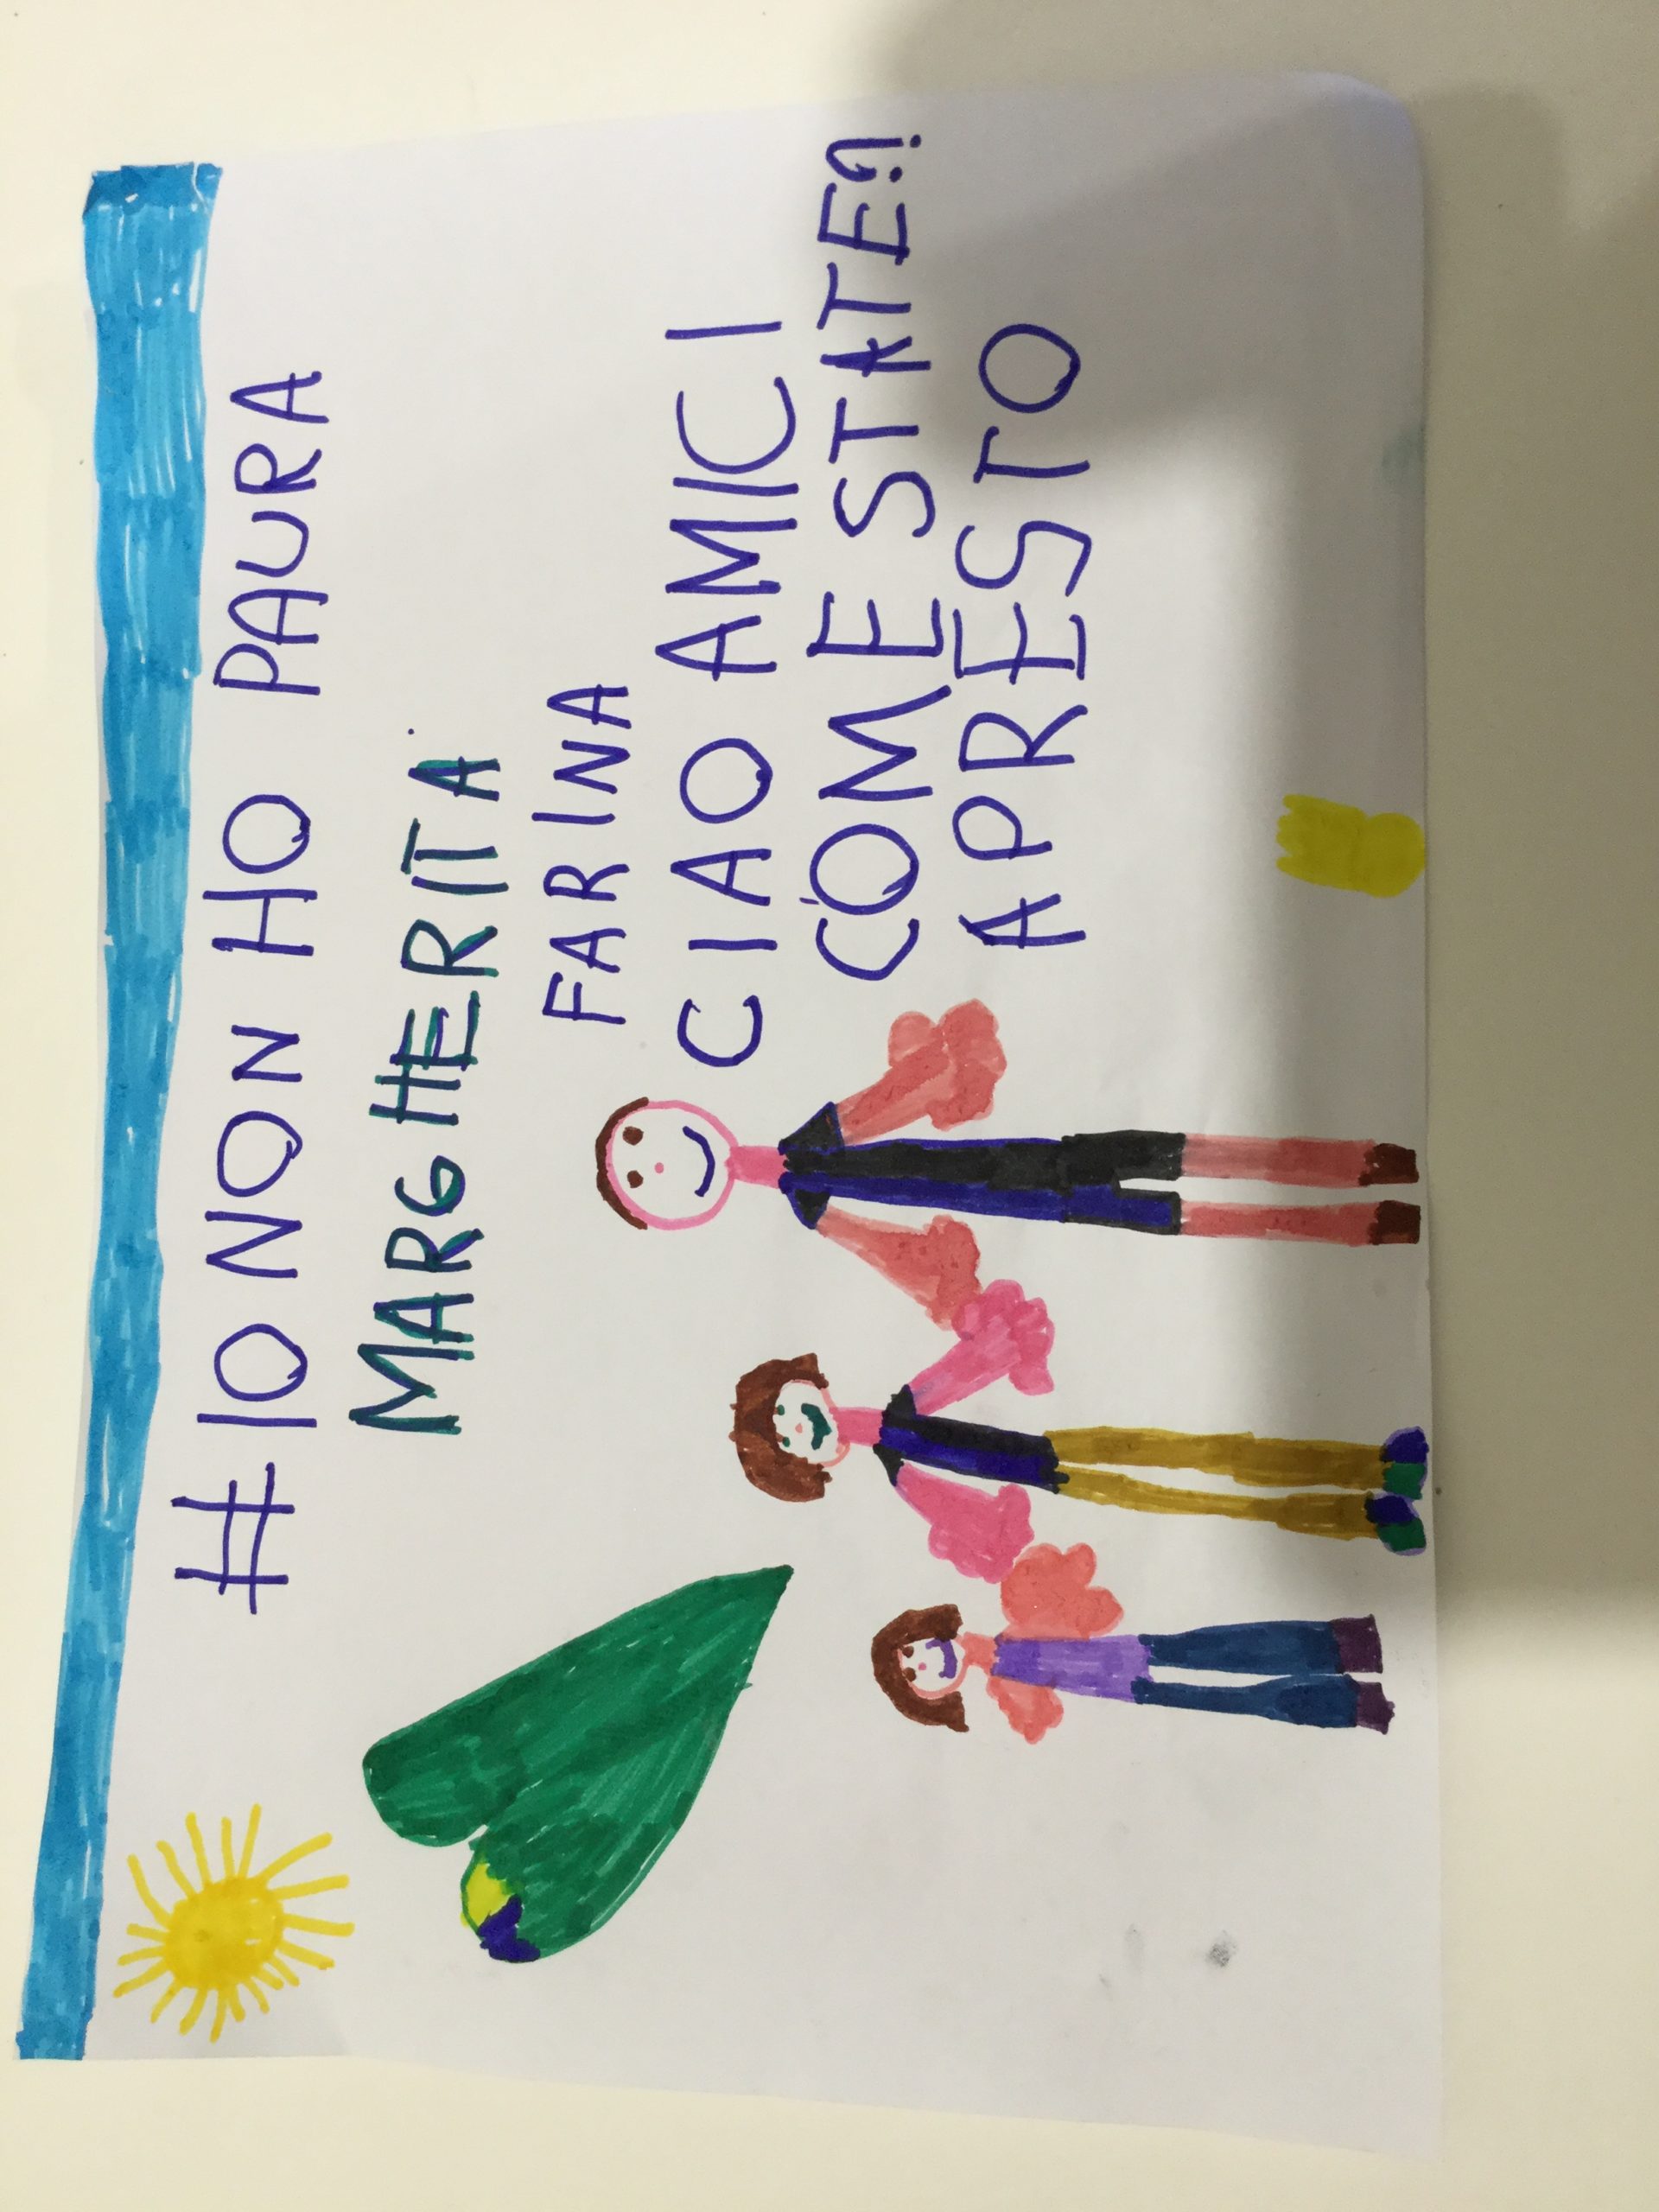 # IO NON HO PAURA
MARGHERITA
FARINA
CIAO AMICI
COME STATE?!
APRESTO